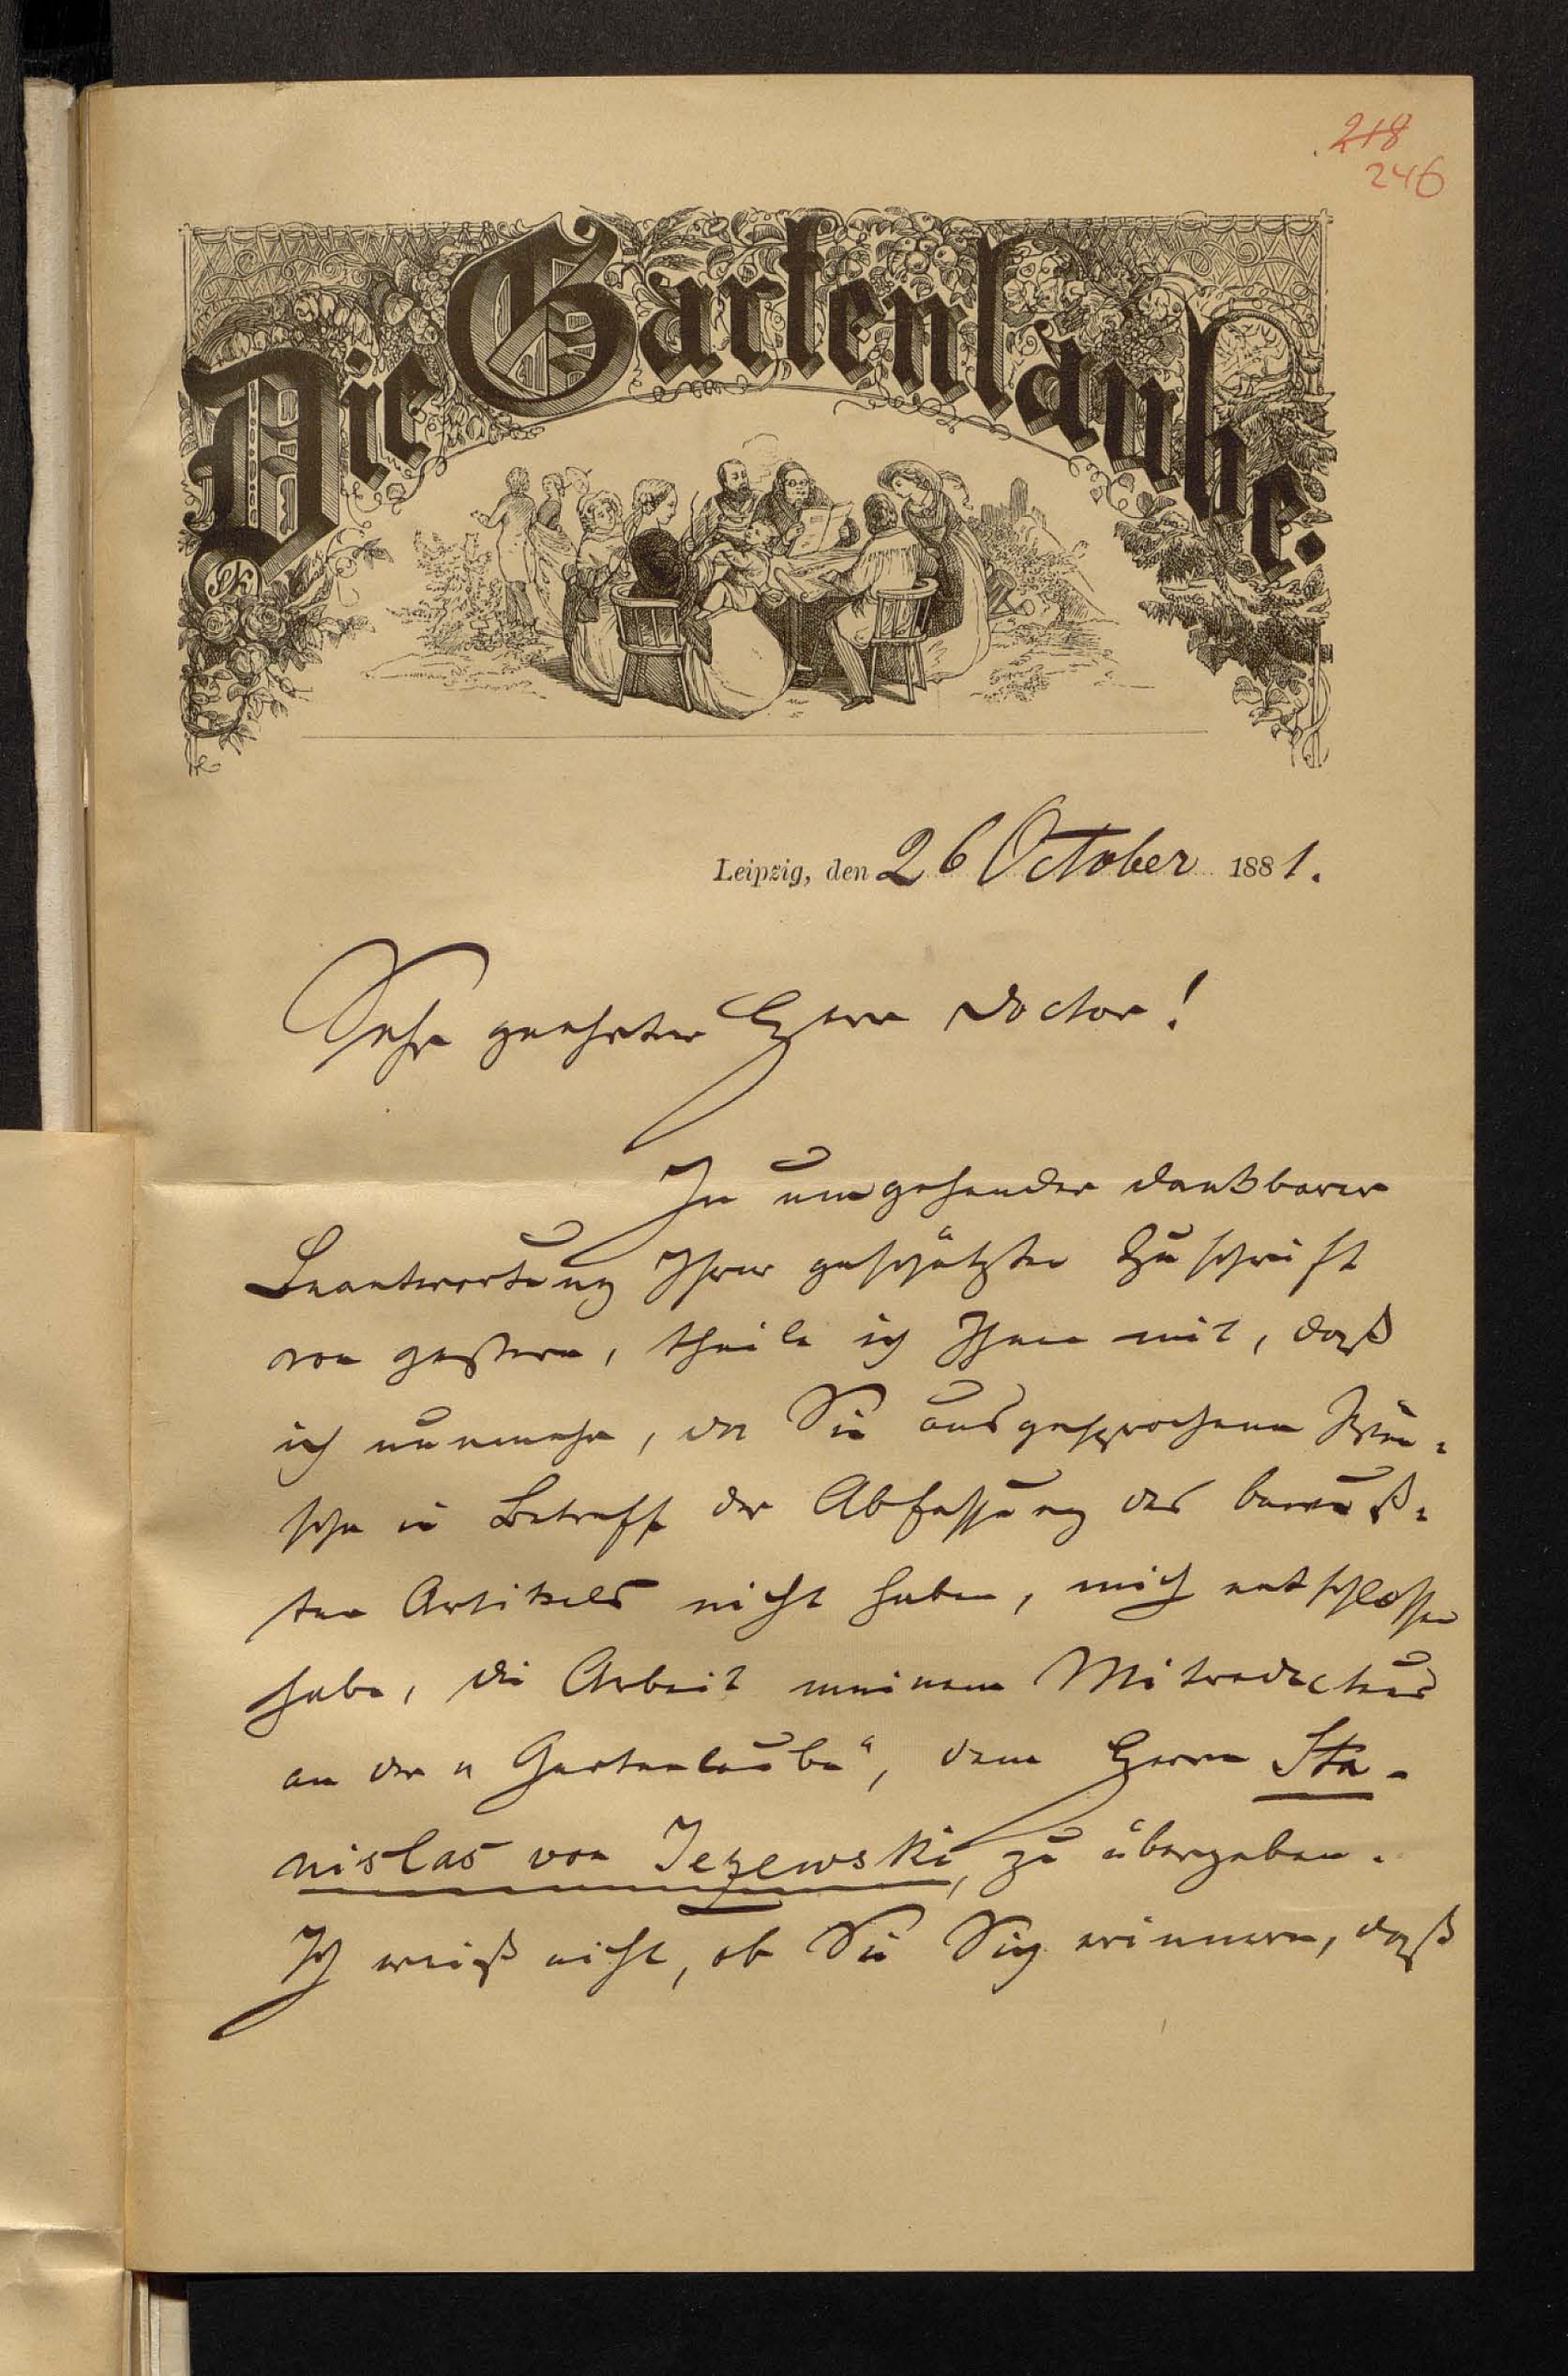 218
246
Die Gartenlaube.
Leipzig, den 26 October 1881.
Sehr geehrter Herr Doctor!
In umgehender dankbarer
Beantwortung Ihrer geschätzten Zuschrift
von gestern, theile ich Ihnen mit, daß
ich nunmehr, da Sie ausgesprochene Wün-
sche in Betreff der Abfassung des bewuß-
ten Artikels nicht haben, mich entschlossen
habe, die Arbeit meinem Mitredacteur
an der „Gartenlaube“, dem Herrn Sta-
nislas von Jezewski, zu übergeben.
Ich weiß nicht, ob Sie Sich erinnern, daß